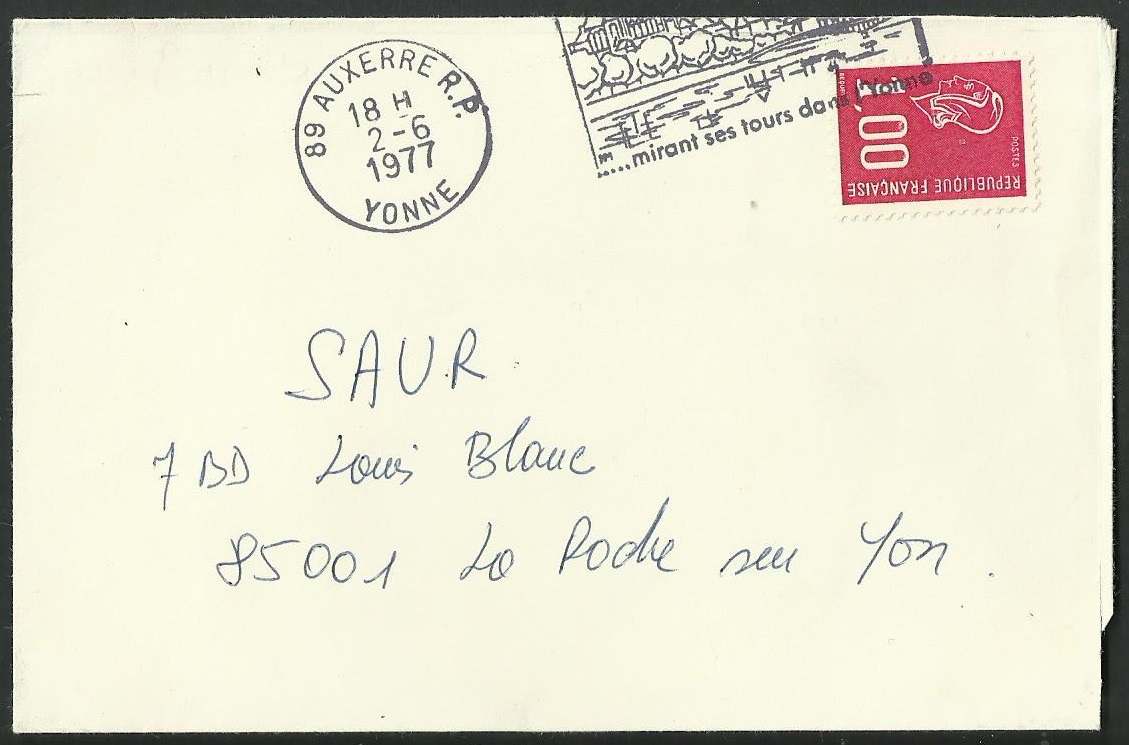 89 AUXERRE R.P.
18 H
2-6
1977
YONNE
.....mirant ses tours dans l'Yonne
1,00
POSTES
REPUBLIQUE FRANÇAISE
SAUR
7 BD Louis Blanc
85001 La Roche sur Yon.